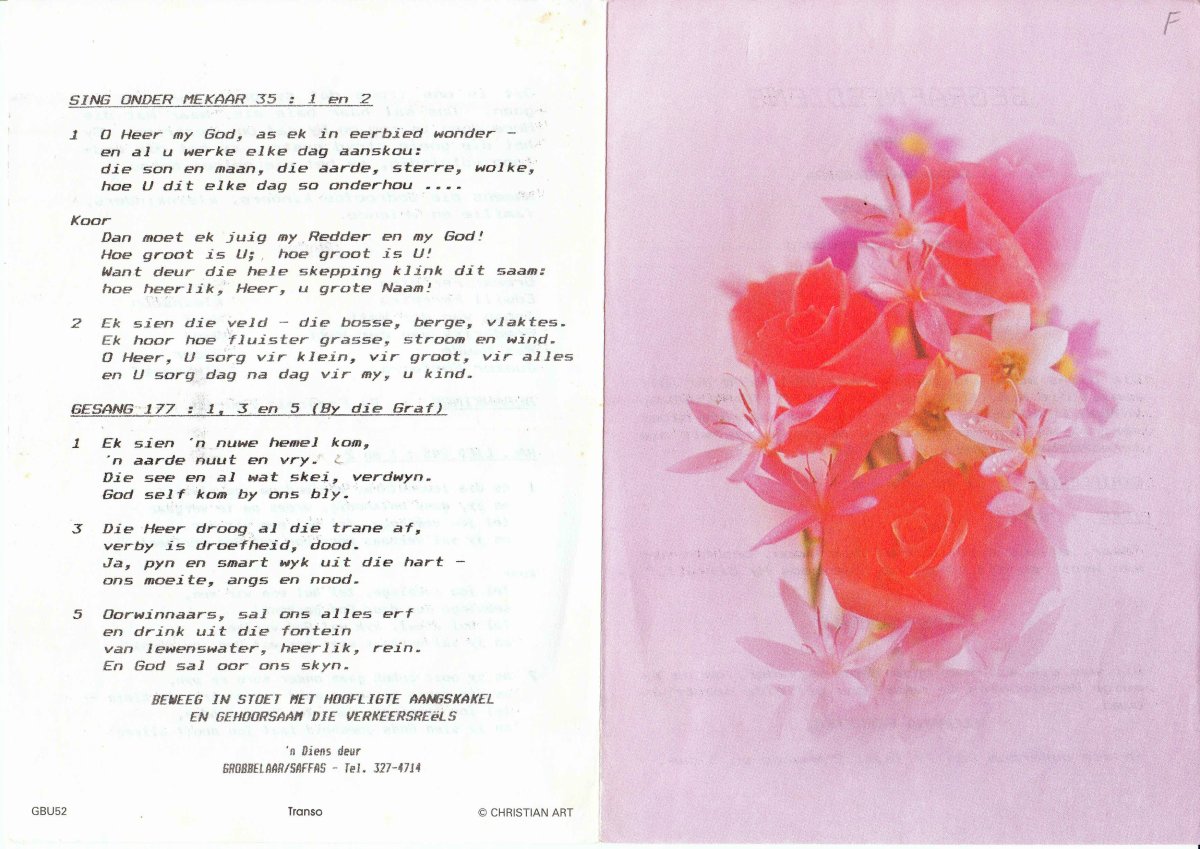 SING ONDER MEKAAR 35 : 1 en 2
1 O Heer my God, as ek in eerbied wonder -
en al u werke elke dag aanskou:
die son en maan, die aarde, sterre, wolke,
hoe U dit elke dag so onderhou ....
Koor
Dan moet ek juig my Redder en my God!
Hoe groot is U; hoe groot is U!
Want deur die hele skepping klink dit saam:
hoe heerlik, Heer, u grote Naam!
2 Ek sien die veld - die bosse, berge, vlaktes.
Ek hoor hoe fluister grasse, stroom en wind.
O Heer, U sorg vir klein, vir groot, vir alles
en U sorg dag na dag vir my, u kind.
GESANG 177 : 1, 3 en 5 (By die Graf)
1 Ek sien 'n nuwe hemel kom,
'n aarde nuut en vry.
Die see en al wat skei, verdwyn.
God self kom by ons bly.
3 Die Heer droog al die trane af,
verby is droefheid, dood.
Ja, pyn en smart wyk uit die hart -
ons moeite, angs en nood.
5 Oorwinnaars, sal ons alles erf
en drink uit die fontein
van lewenswater, heerlik, rein.
En God sal oor ons skyn.
BEWEEG IN STOET MET HOOFLIGTE AANGSKAKEL
EN GEHOORSAAM DIE VERKEERSREëLS
'n Diens deur
GROBBELAAR/SAFFAS - Tel. 327-4714
GBU52
Transo
© CHRISTIAN ART
F